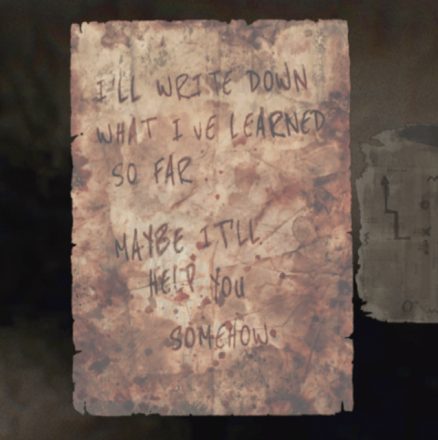 I'LL WRITE DOWN
WHAT I'VE LEARNED
SO FAR...
MAYBE IT'LL
HELP YOU
SOMEHOW